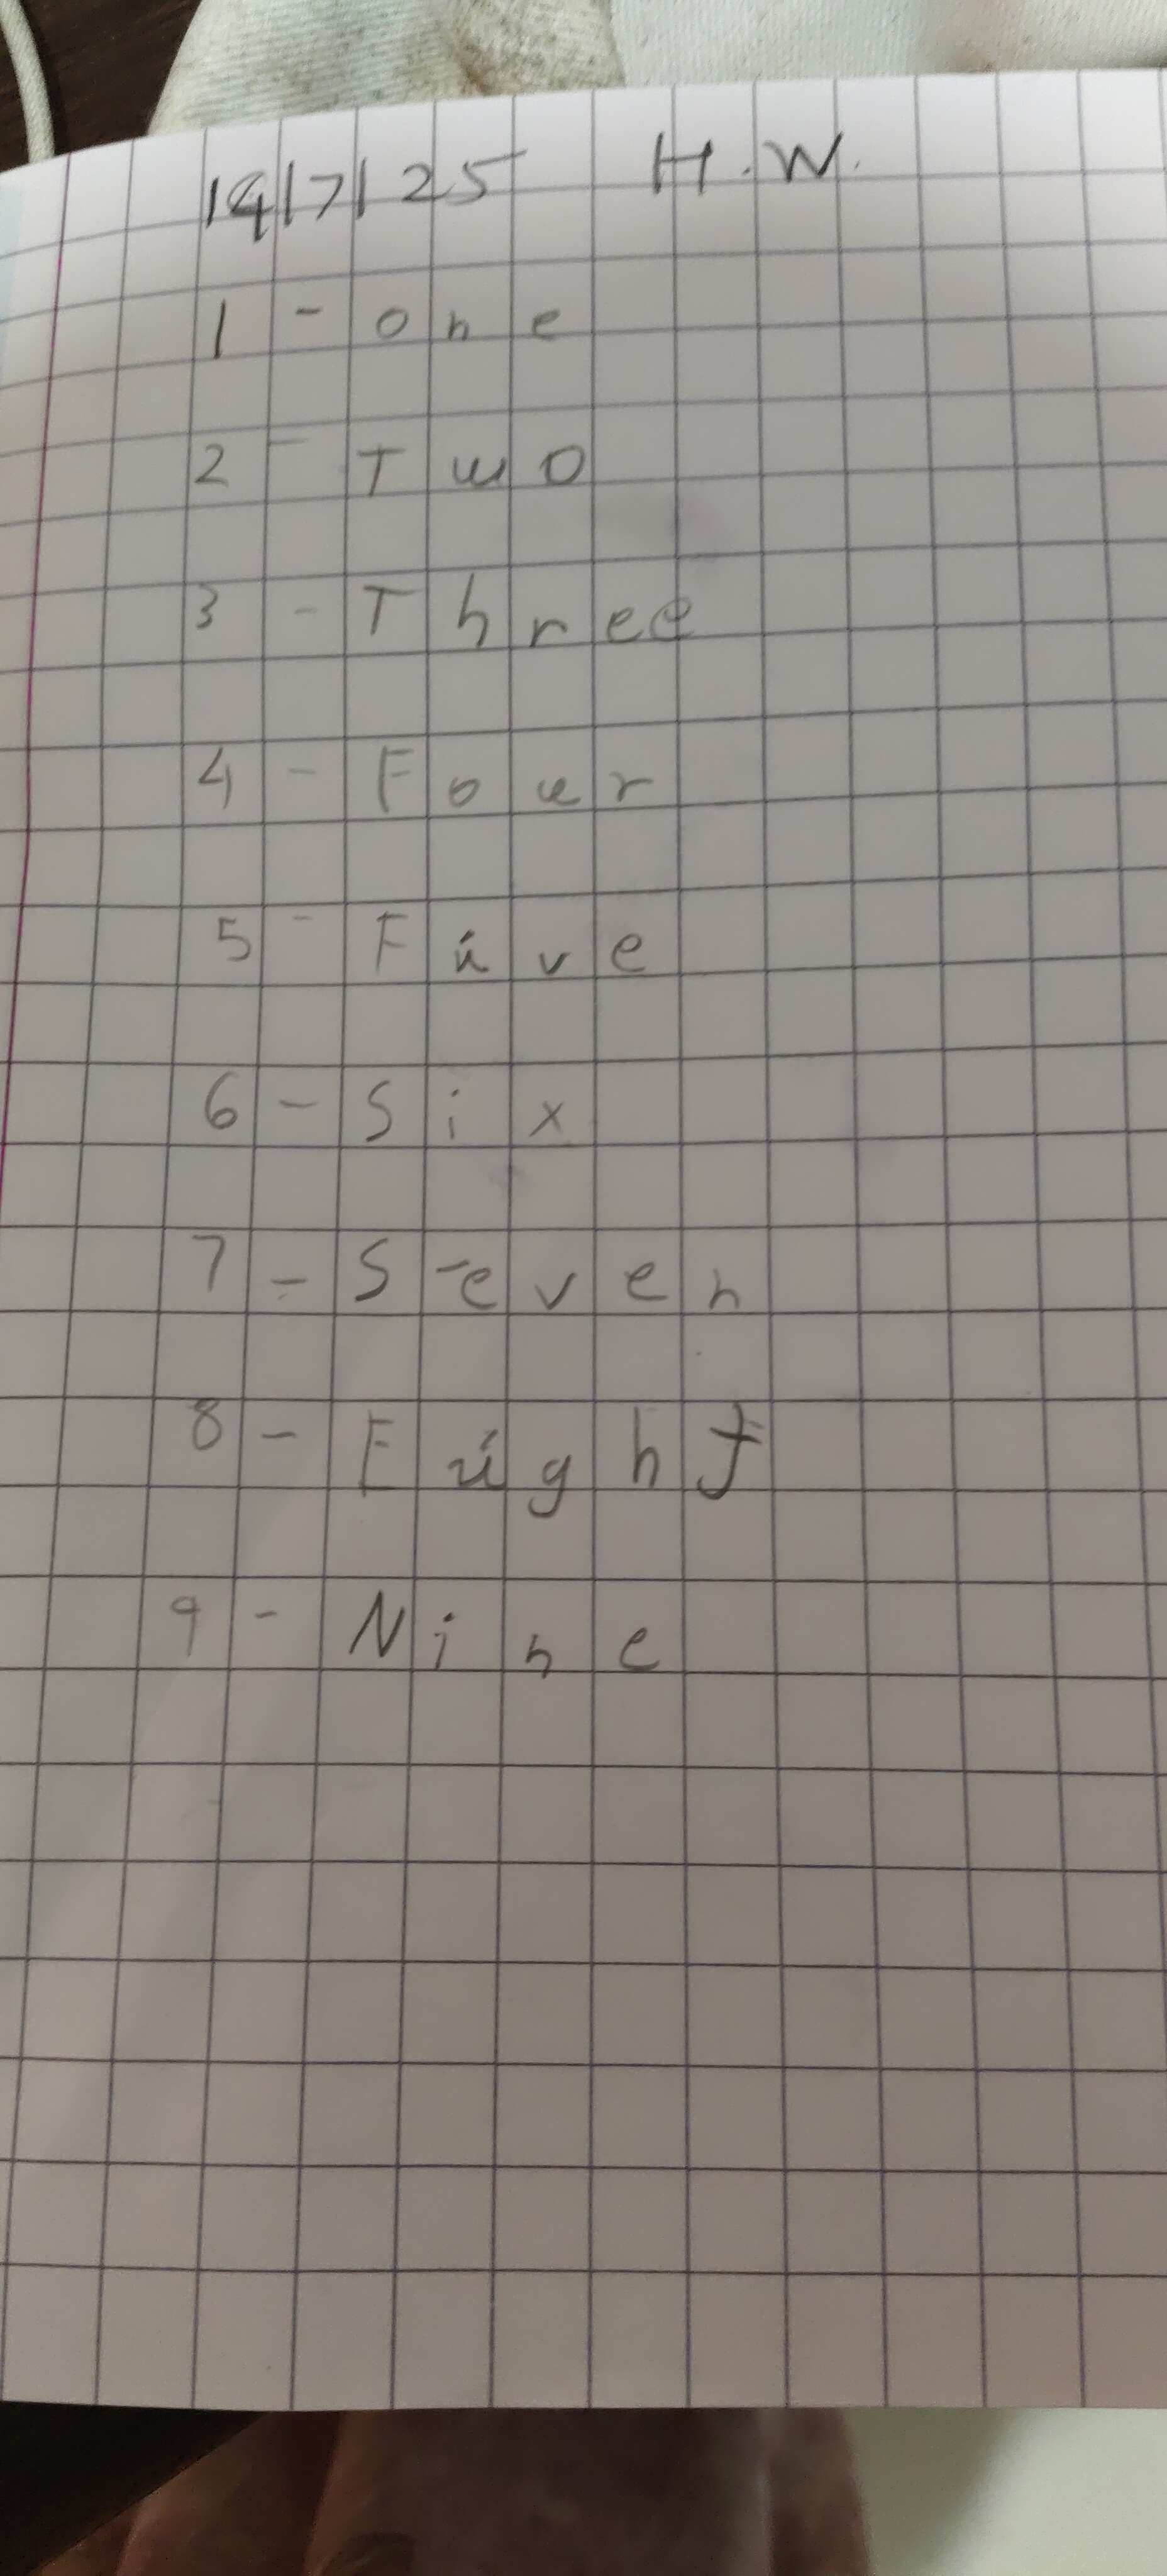 14/7/25 H.W.
1 - one
2 - Two
3 - Three
4 - Four
5 - Five
6 - Six
7 - Seven
8 - Eight
9 - Nine